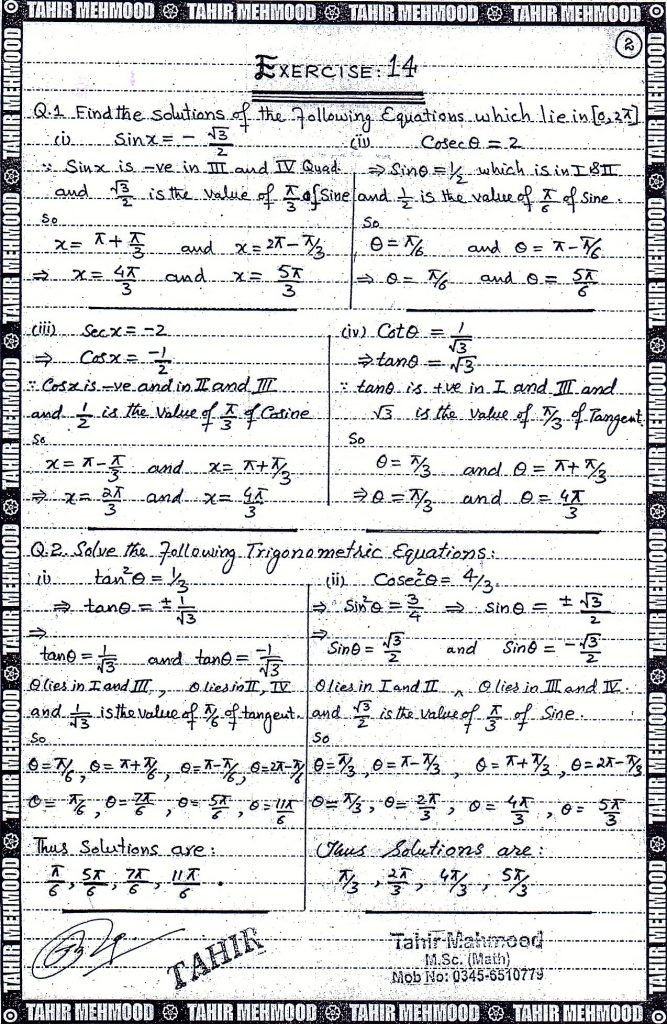 TAHIR MEHMOOD TAHIR MEHMOOD TAHIR MEHMOOD TAHIR MEHMOOD
2
EXERCISE: 14
Q.1 Find the solutions of the following Equations which lie in [0,2π]
(i) Sin x = - √3/2
∵ Sin x is -ve in III and IV Quad
and √3/2 is the value of π/3 of Sine
So
x = π + π/3 and x = 2π - π/3
⇒ x = 4π/3 and x = 5π/3
(ii) Cosec θ = 2
⇒ Sin θ = 1/2 which is in I & II
and 1/2 is the value of π/6 of Sine.
So
θ = π/6 and θ = π - π/6
⇒ θ = π/6 and θ = 5π/6
(iii) Sec x = -2
⇒ Cos x = -1/2
∵ Cos x is -ve and in II and III
and 1/2 is the value of π/3 of Cosine
So
x = π - π/3 and x = π + π/3
⇒ x = 2π/3 and x = 4π/3
(iv) Cot θ = 1/√3
⇒ tan θ = √3
∵ tan θ is +ve in I and III and
√3 is the value of π/3 of Tangent
So
θ = π/3 and θ = π + π/3
⇒ θ = π/3 and θ = 4π/3
Q.2. Solve the following Trigonometric Equations:
(i) tan²θ = 1/3
⇒ tan θ = ± 1/√3
⇒
tan θ = 1/√3 and tan θ = -1/√3
θ lies in I and III, θ lies in II, IV
and 1/√3 is the value of π/6 of tangent.
So
θ = π/6, θ = π + π/6, θ = π - π/6, θ = 2π - π/6
θ = π/6, θ = 7π/6, θ = 5π/6, θ = 11π/6
Thus Solutions are:
π/6, 5π/6, 7π/6, 11π/6.
(ii) Cosec²θ = 4/3
⇒ Sin²θ = 3/4 ⇒ Sin θ = ± √3/2
⇒
Sin θ = √3/2 and Sin θ = -√3/2
θ lies in I and II, θ lies in III and IV.
and √3/2 is the value of π/3 of Sine.
So
θ = π/3, θ = π - π/3, θ = π + π/3, θ = 2π - π/3
θ = π/3, θ = 2π/3, θ = 4π/3, θ = 5π/3
Thus Solutions are:
π/3, 2π/3, 4π/3, 5π/3
TAHIR
Tahir Mahmood
M.Sc. (Math)
Mob No: 0345-6510779
TAHIR MEHMOOD TAHIR MEHMOOD TAHIR MEHMOOD TAHIR MEHMOOD
TAHIR MEHMOOD TAHIR MEHMOOD TAHIR MEHMOOD TAHIR MEHMOOD TAHIR MEHMOOD TAHIR MEHMOOD
TAHIR MEHMOOD TAHIR MEHMOOD TAHIR MEHMOOD TAHIR MEHMOOD TAHIR MEHMOOD TAHIR MEHMOOD